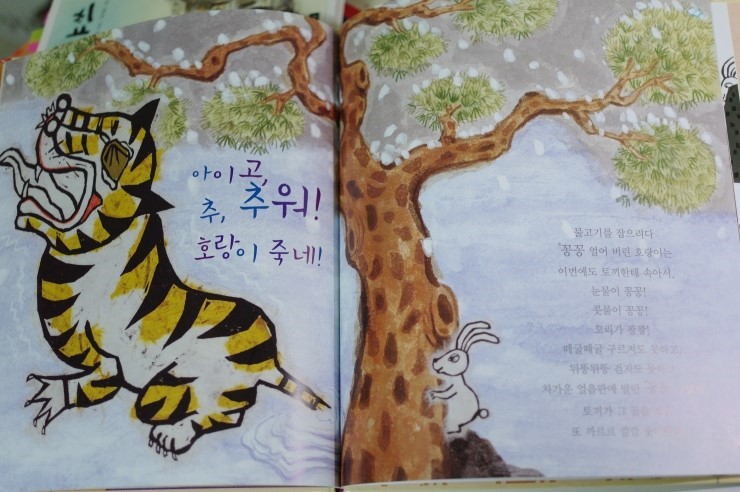 아이고,
추, 추워!
호랑이 죽네!
물고기를 잡으려다
꽁꽁 얼어 버린 호랑이는
이번에도 토끼한테 속아서,
눈물이 꽁꽁!
콧물이 꽁꽁!
꼬리가 꽁꽁!
떼굴떼굴 구르지도 못하고
뒤뚱뒤뚱 걷지도
차가운 얼음판에
토끼가 그
또